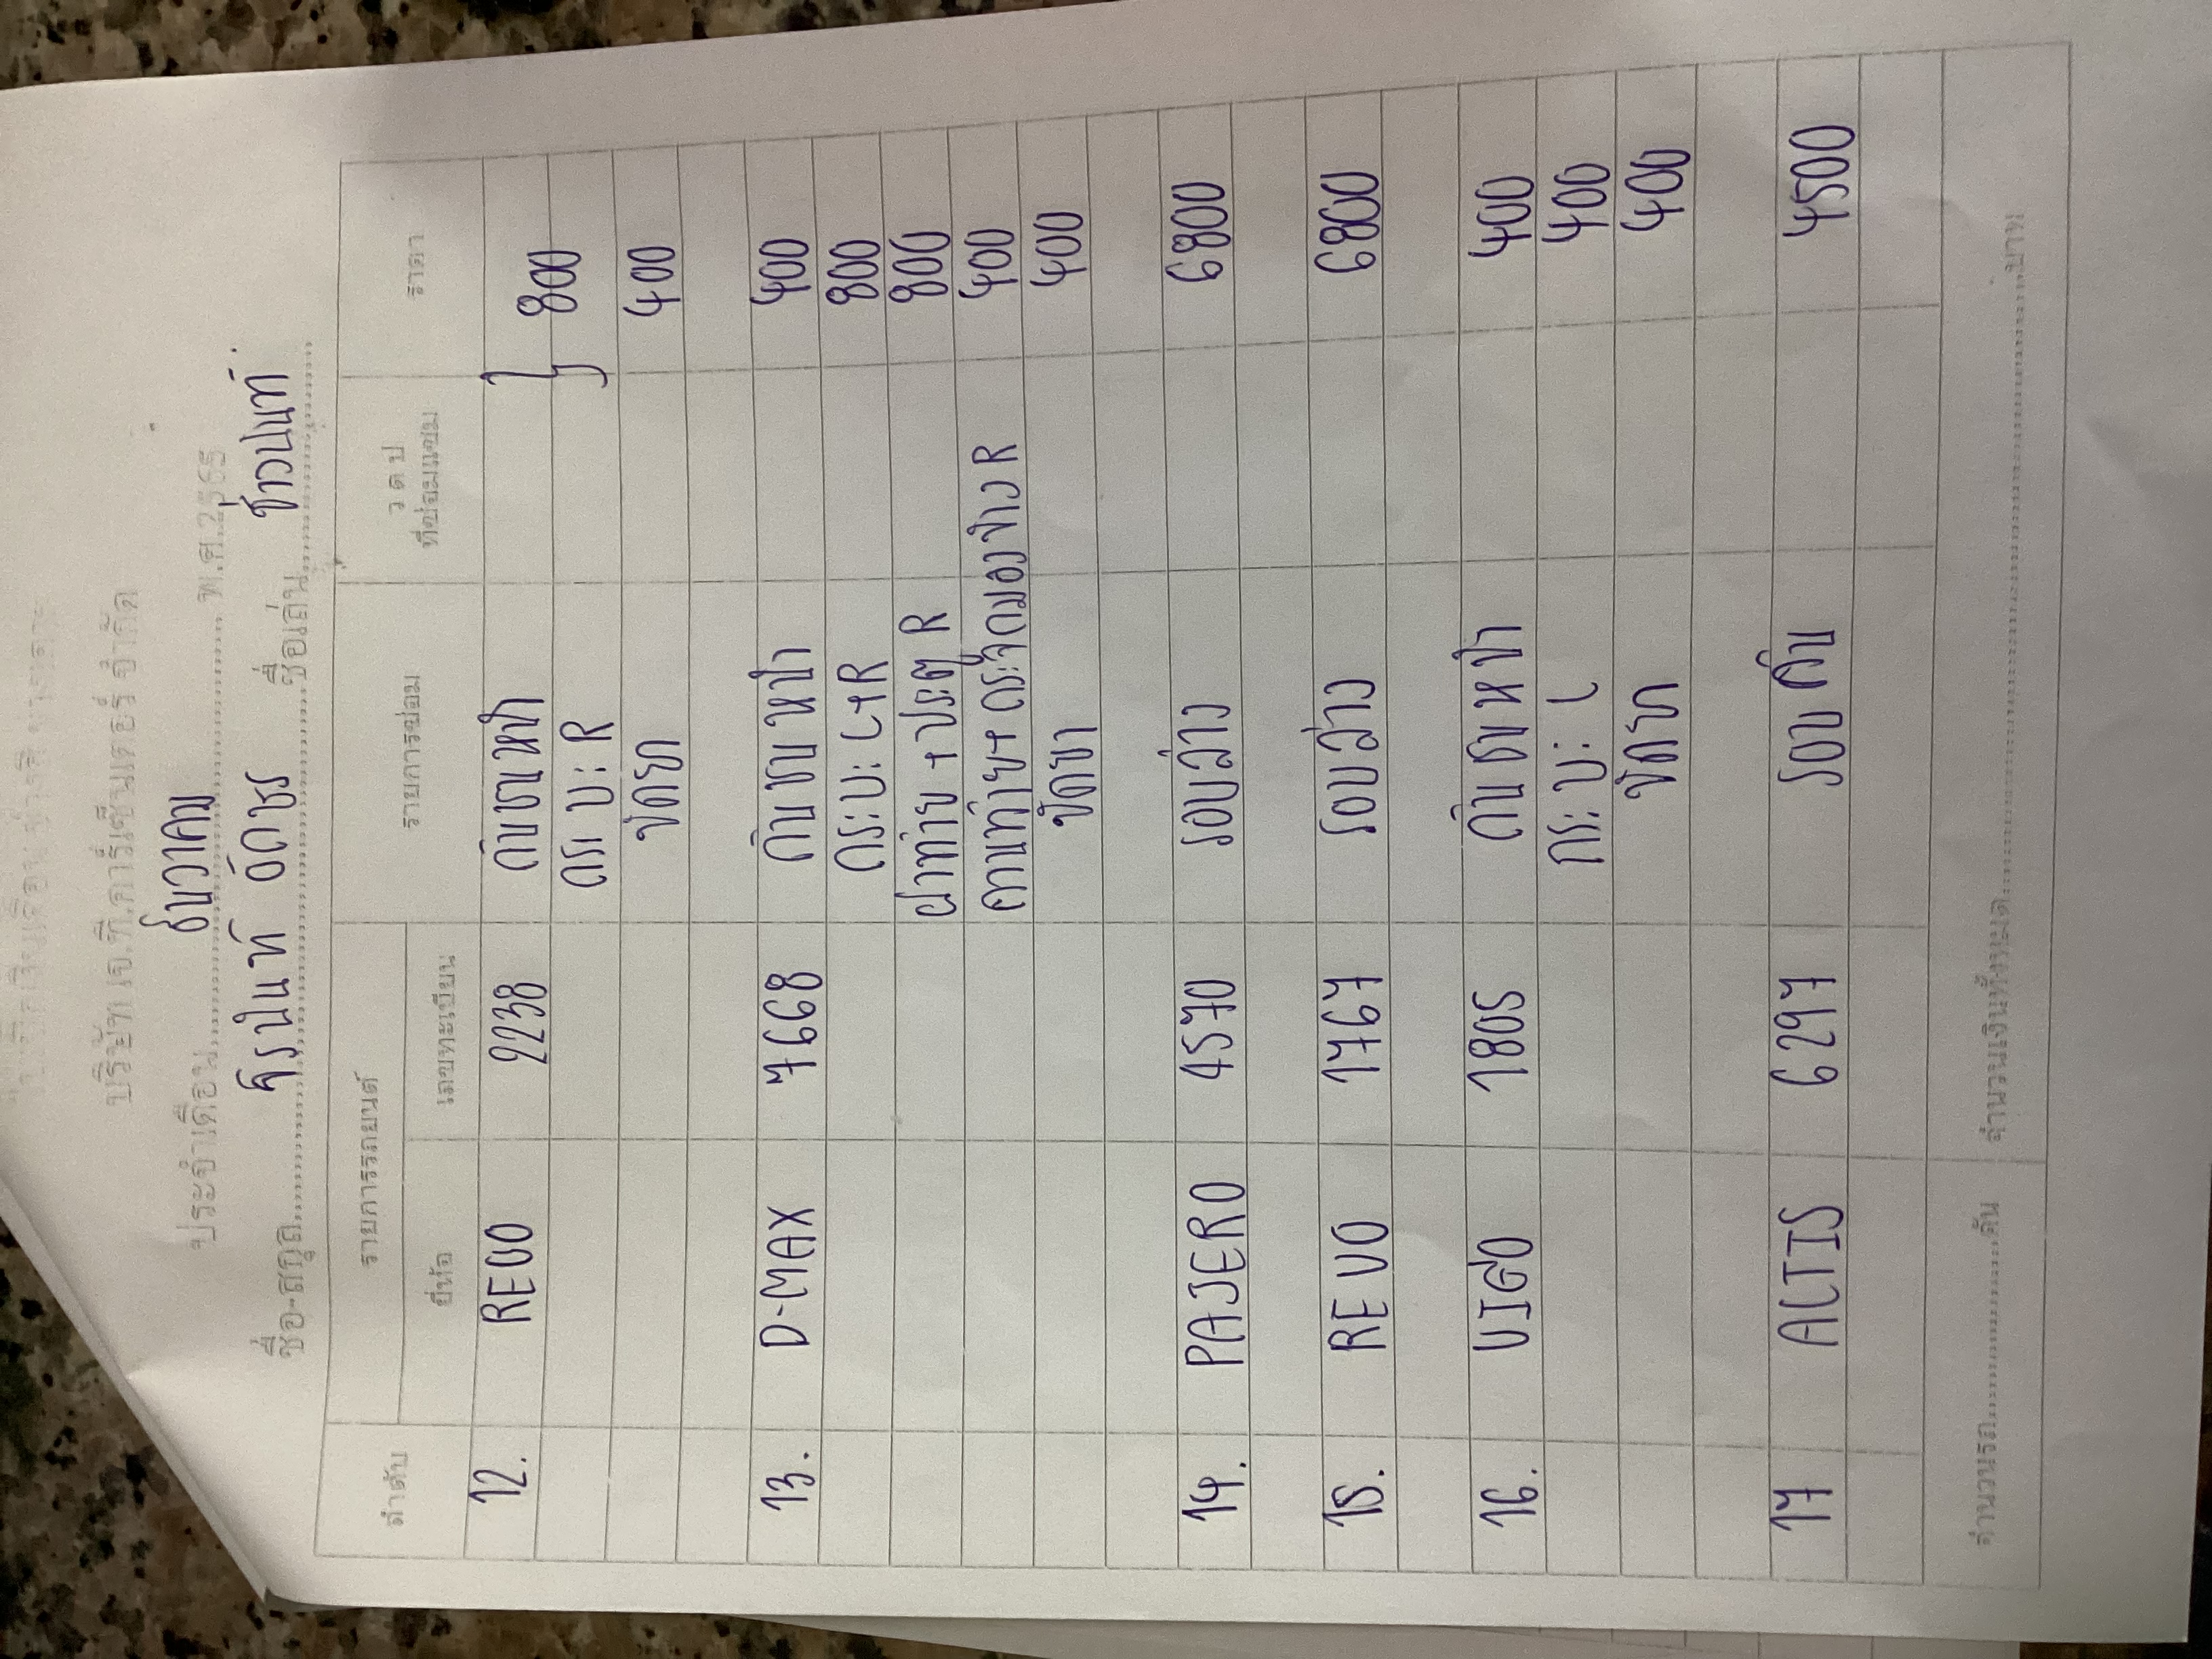 บริษัท เจ.ที.คาร์เซ็นเตอร์ จำกัด
ประจำเดือน ธันวาคม พ.ศ.2565
ชื่อ-สกุล ชื่อเล่น
ลำดับ รายการรถยนต์ รายการซ่อม ว ด ป ราคา
ยี่ห้อ เลขทะเบียน ที่ซ่อมแซม
12. REVO 2238 กันชนหน้า } 800
R
ขัดยา 400
13. D-MAX 7668 กันชนหน้า 400
กระบะ L+R 800
ฝาท้าย + ประตู R 800
R 400
ขัดยา 400
14. PAJERO 4570 รอบล่าง 6800
15. REVO 1767 รอบล่าง 6800
16. VIGO 1805 กันชนหน้า 400
กระบะ L 400
ขัดยา 400
17 ALTIS 6297 รอบคัน 4500
จำนวนรถ คัน จำนวนเงินทั้งหมด บาท